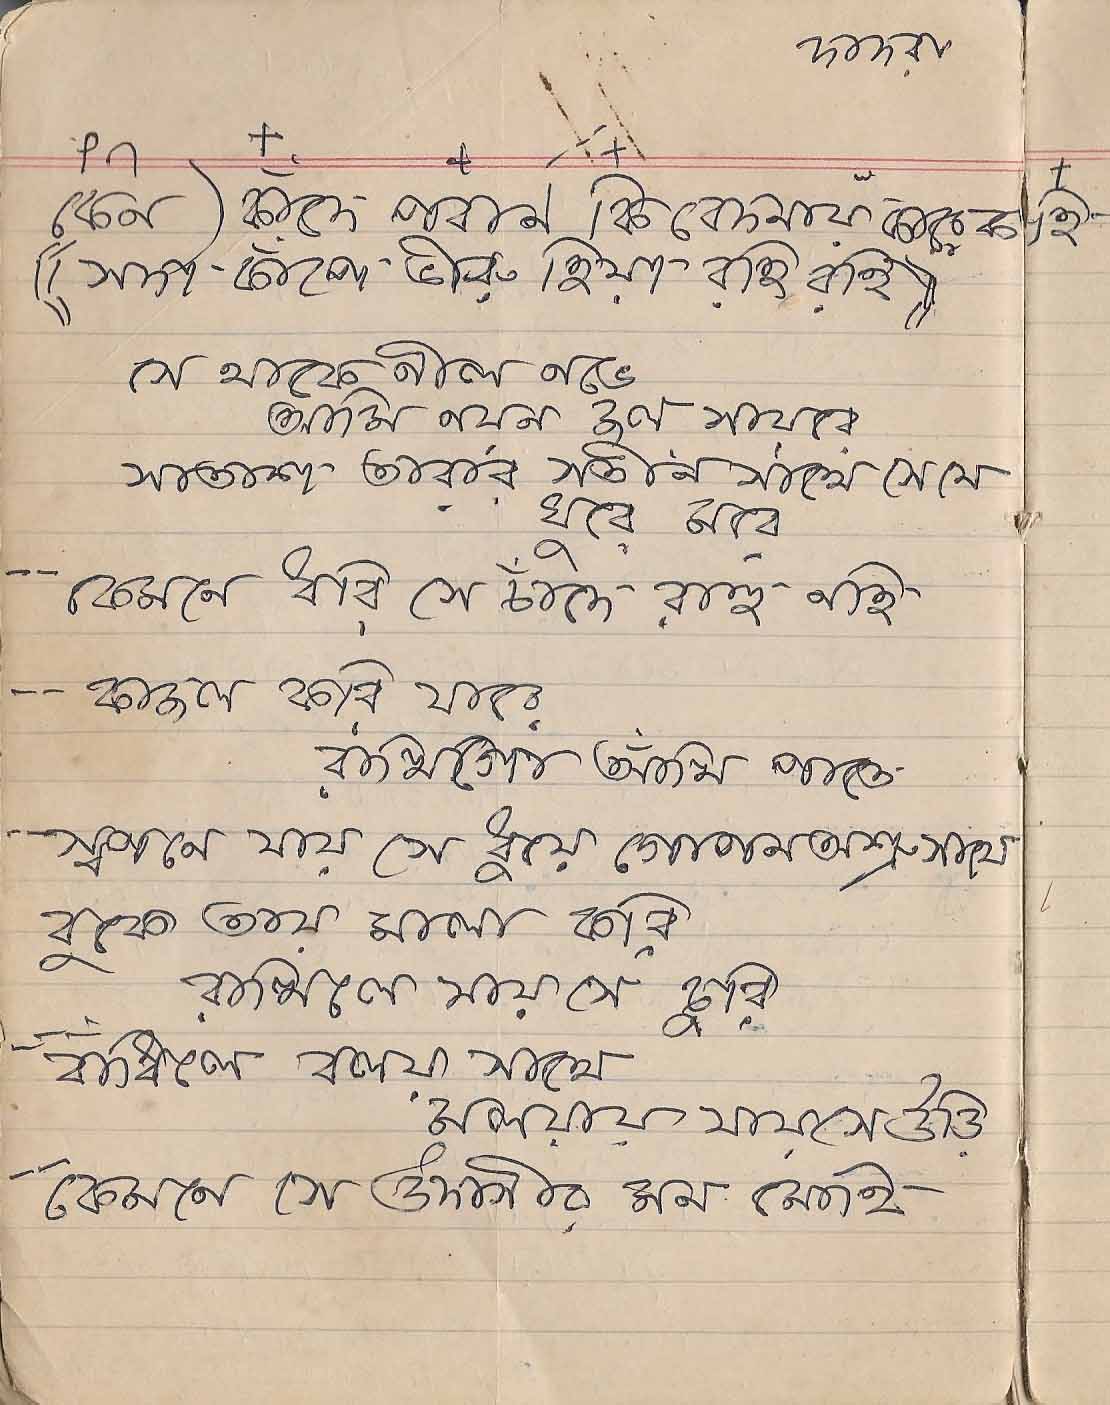 দাদরা
কেন) কাঁদে পরান কি বেদনায় কারে কহি
((সদা কাঁপে ভীরু হিয়া রহি রহি))
সে থাকে নীল নভে
আমি নয়ন জল সায়রে
সাতাশ তারার সতীন সাথে সে যে
ঘুরে মরে
-- কেমনে ধরি সে চাঁদে রাহু নহি
-- কাজল করি যারে
রাখি গো আঁখি পাতে
-- স্বপনে যায় সে ধুয়ে গোপন অশ্রু সাথে
বুকে তায় মালা করি
রাখিলে যায় সে চুরি
-- বাঁধিলে বলয় সাথে
মলয়ায় যায় সে উড়ি
-- কেমনে সে উদাসীর মন মোহি